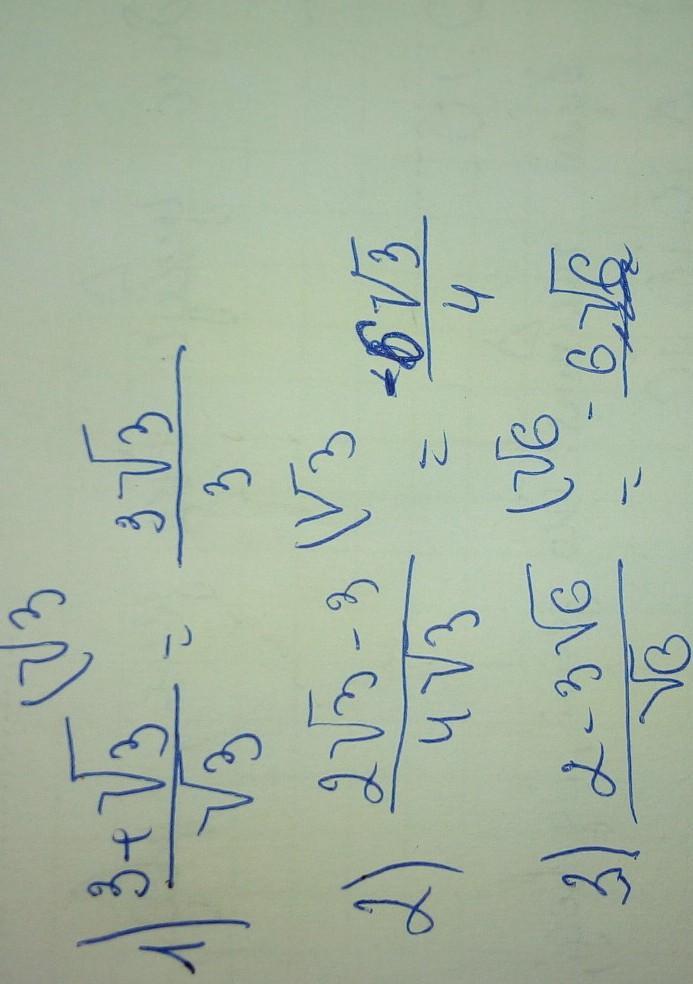 1) (3+√3)/√3 (√3 = 3√3/3
2) (2√3-3)/4√3 (√3 = -6√3/4
3) (2-3√6)/√6 (√6 = -6√6